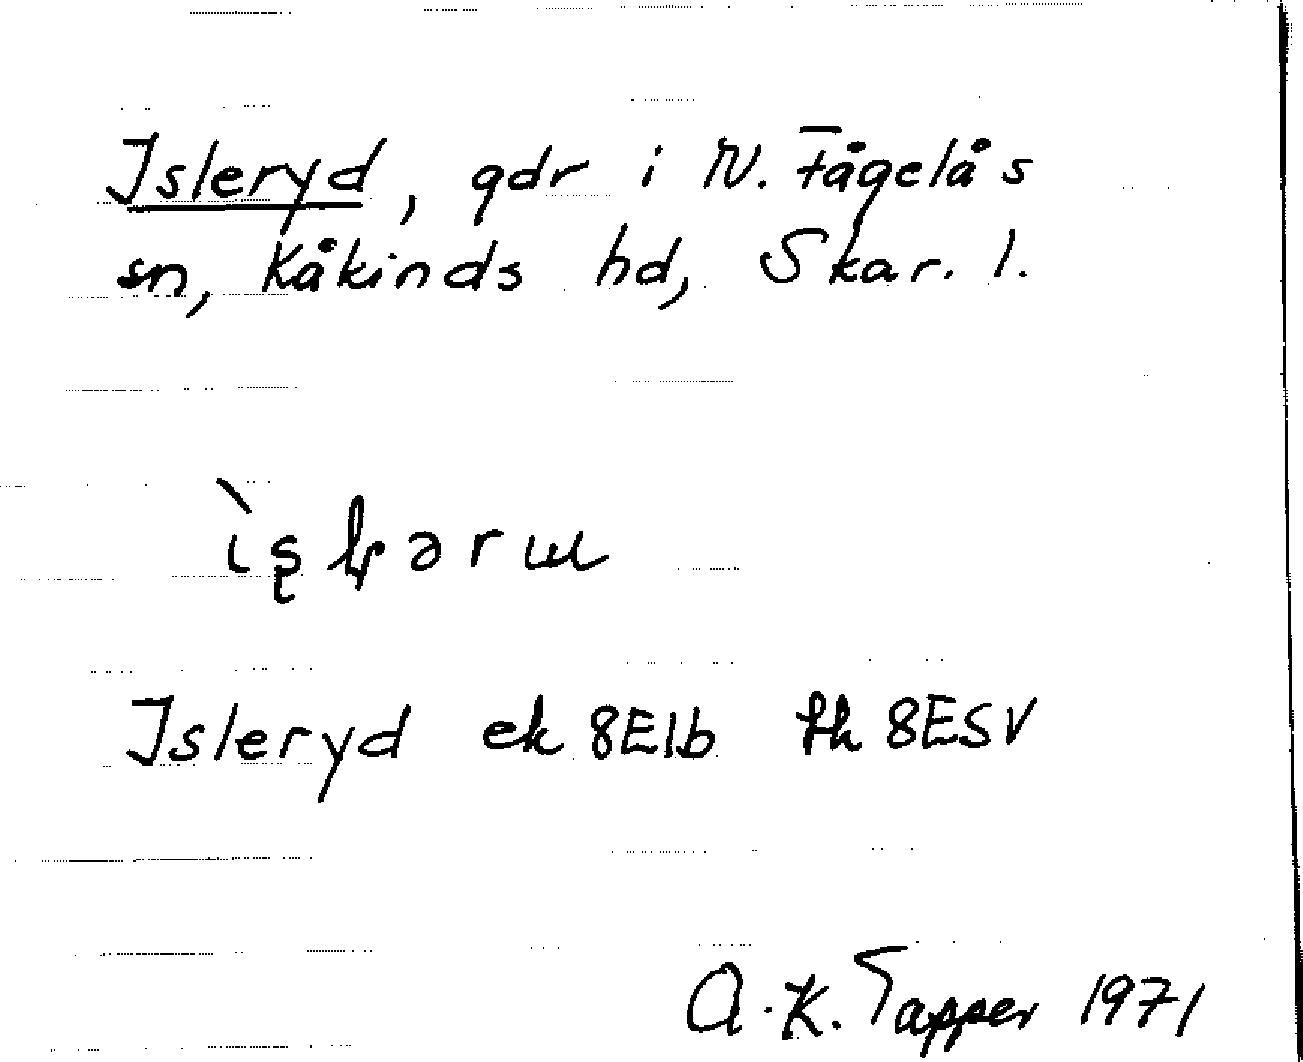 Isleryd, gdr i N. Fågelås
sn, Kåkinds hd, Skar. l.
Isleryd ek 8E1b fk 8ESV
A.K. Tapper 1971